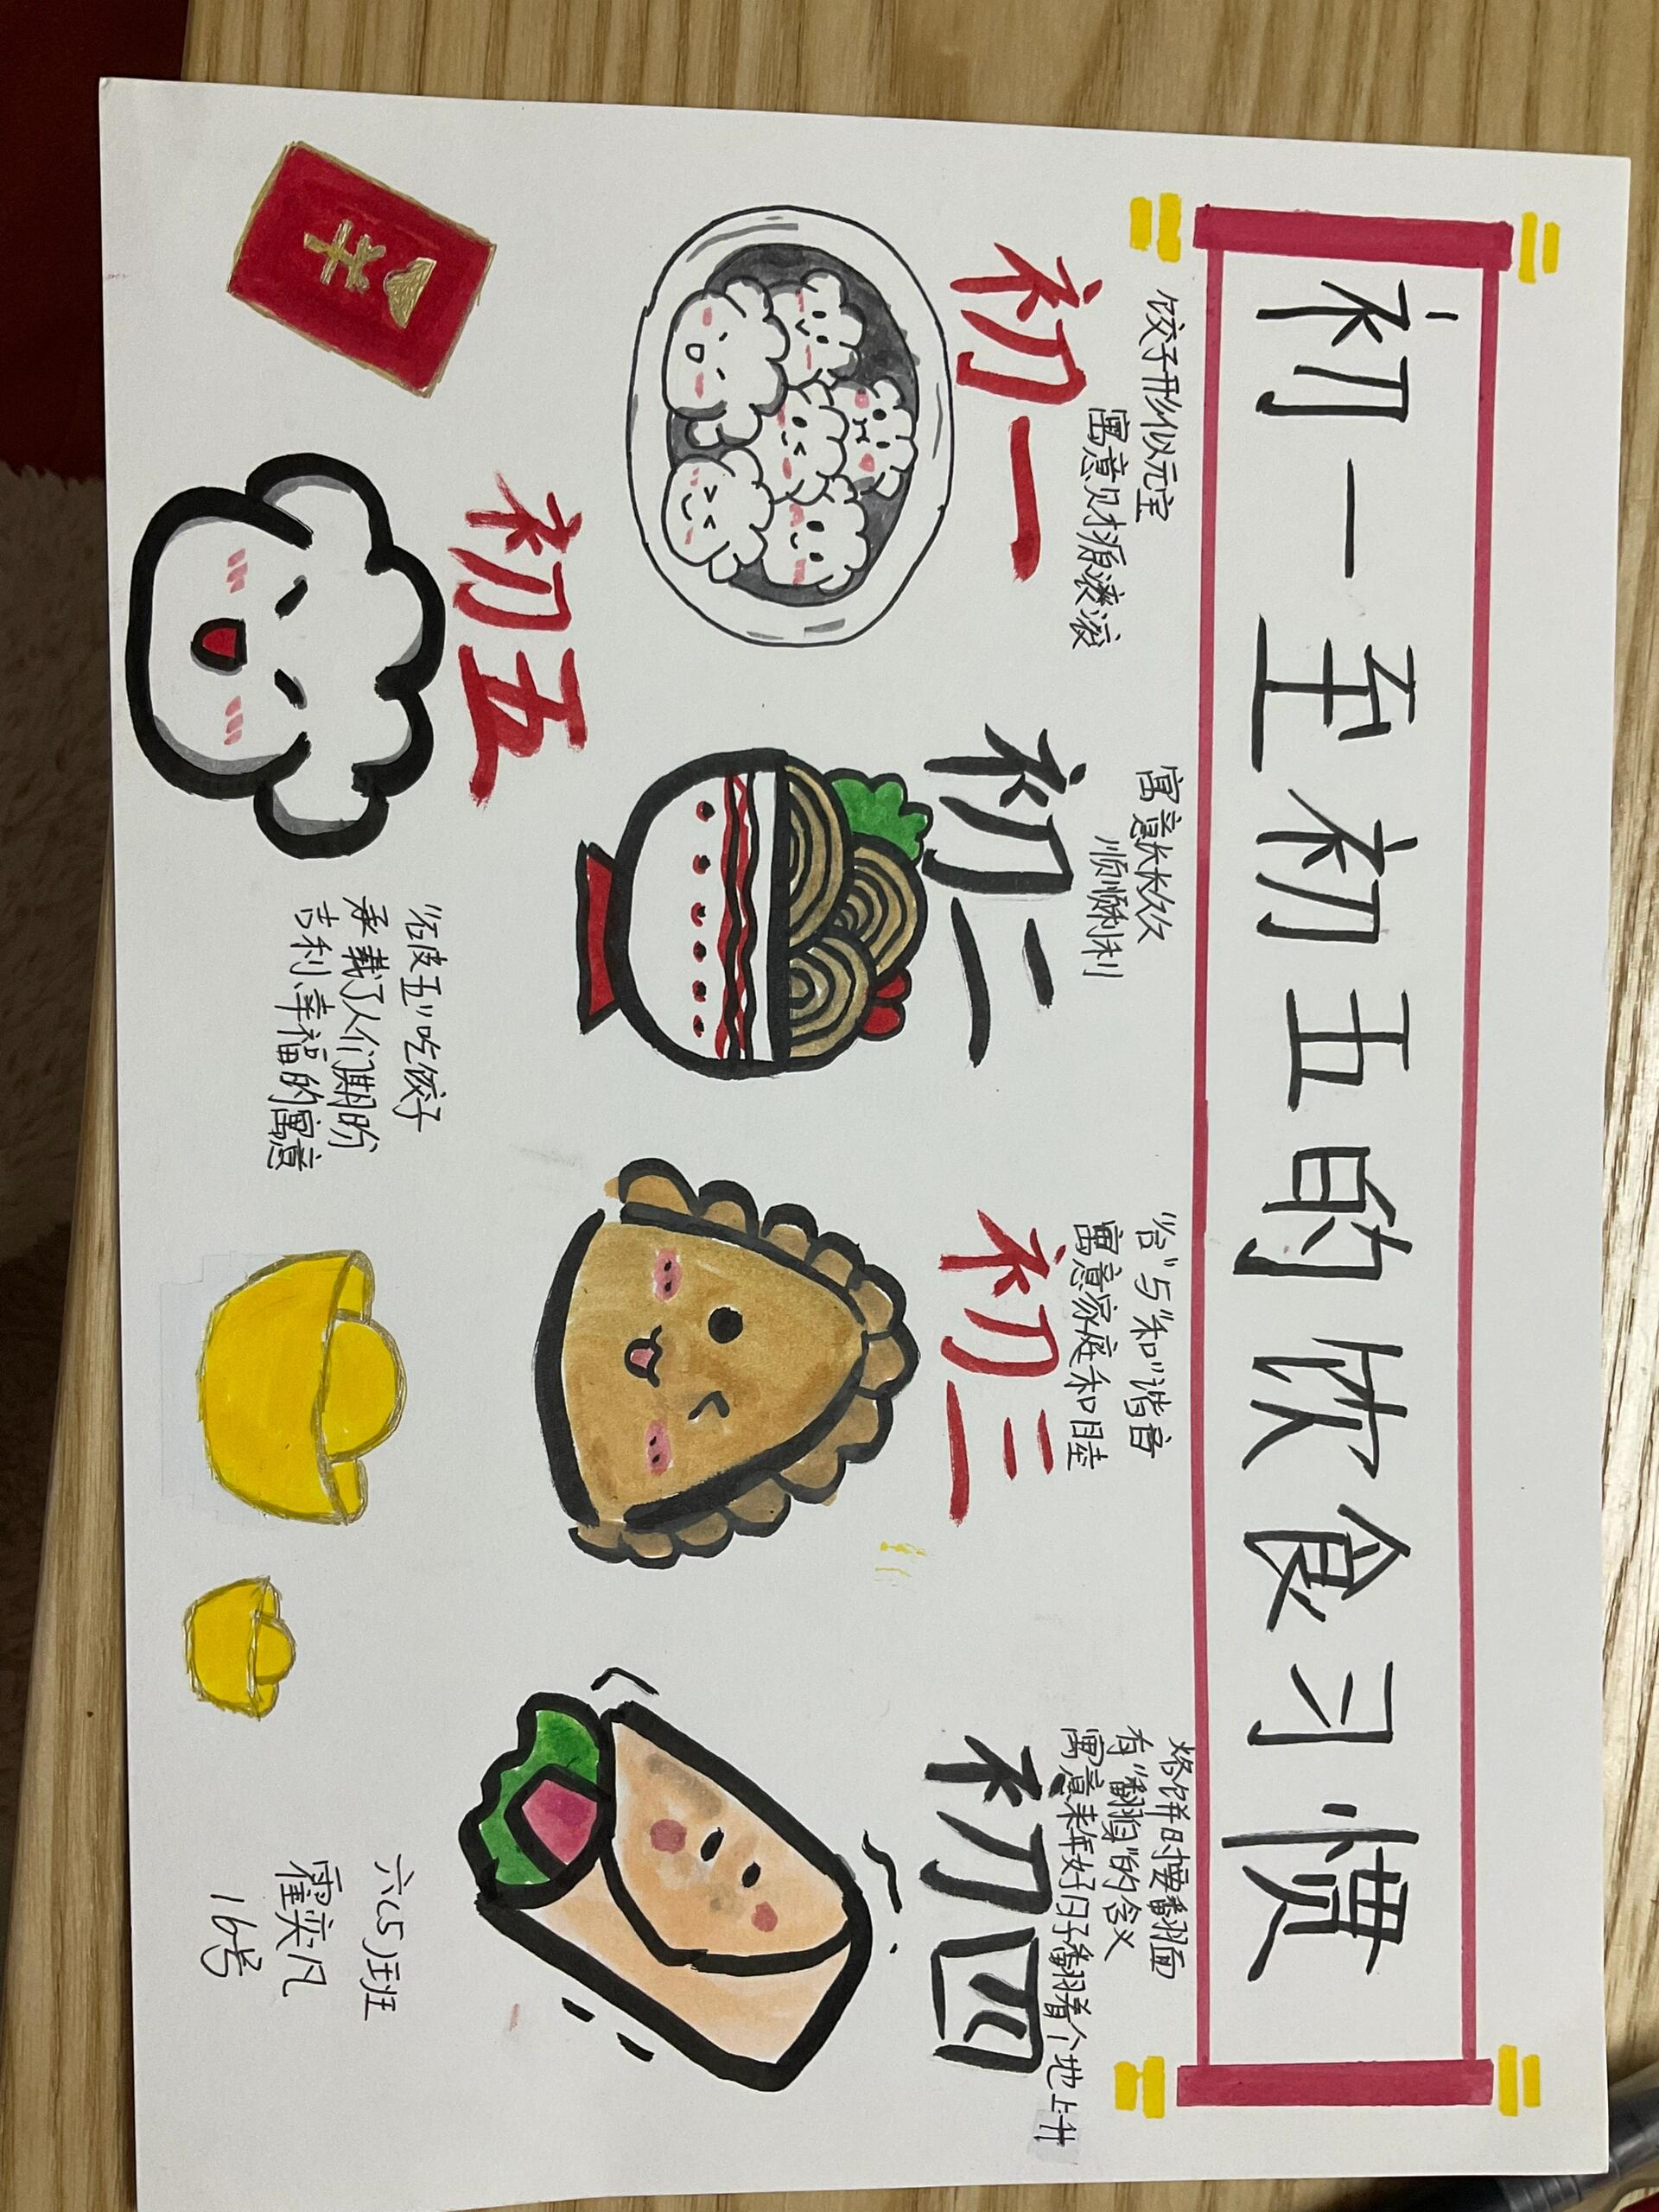 初一至初五的饮食习惯
饺子形似元宝
寓意财源滚滚
初一
寓意长长久久
顺顺利利
初二
“合”与“和”谐音
寓意家庭和睦
初三
烙饼时要翻面
有“翻身”的含义
寓意来年好日子翻着个地上升
初四
初五
吃饺子
承载了人们期盼
吉利、幸福的寓意
六(5)班
霍奕凡
16号